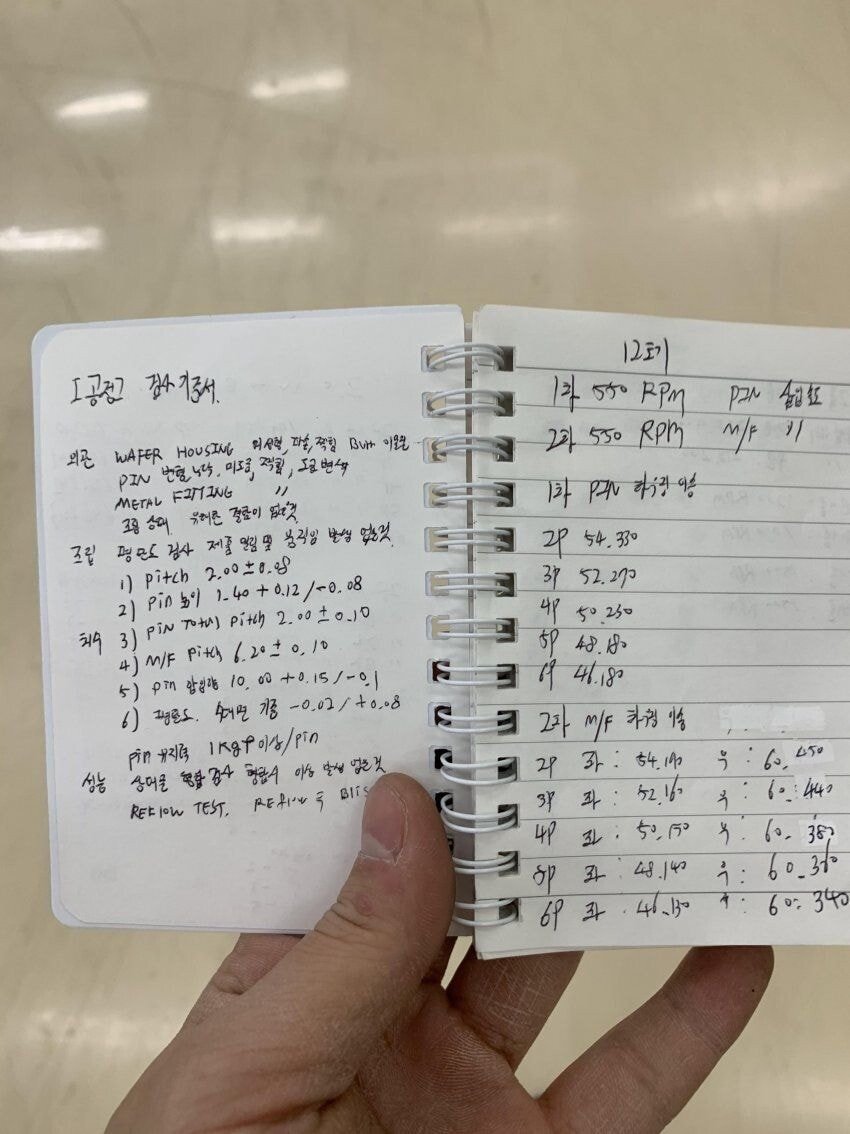 공정 검사기준서.
외관 WAFER HOUSING 미성형, 파손, 찍힘, Burr 이물
PIN 변형, 누락, 미도금, 찍힘, 도금변색
METAL FITTING 〃
조립 상태 유해한 결함이 없을것.
조립 평탄도 검사 제품 밀림 및 움직임 발생 없을것.
1) Pitch 2.00±0.08
2) Pin 높이 1.40 +0.12/-0.08
치수 3) PIN Total Pitch 2.00±0.10
4) M/F Pitch 6.20±0.10
5) Pin 압입량 10.00 +0.15/-0.1
6) 평탄도. -0.02/+0.08
Pin 유지력 1Kgf 이상/Pin
성능 상대물 결합 검사 결합시 이상 발생 없을것
REFLOW TEST. REFlow 후
12호기
1차 550 RPM PIN 삽입속도
2차 550 RPM M/F 〃
1차 PIN 이송
2P 54.330
3P 52.270
4P 50.230
5P 48.180
6P 46.180
2차 M/F 이송
2P 좌: 54.190 우: 60.450
3P 좌: 52.160 우: 60.440
4P 좌: 50.150 우: 60.380
5P 좌: 48.140 우: 60.360
6P 좌: 46.130 우: 60.340